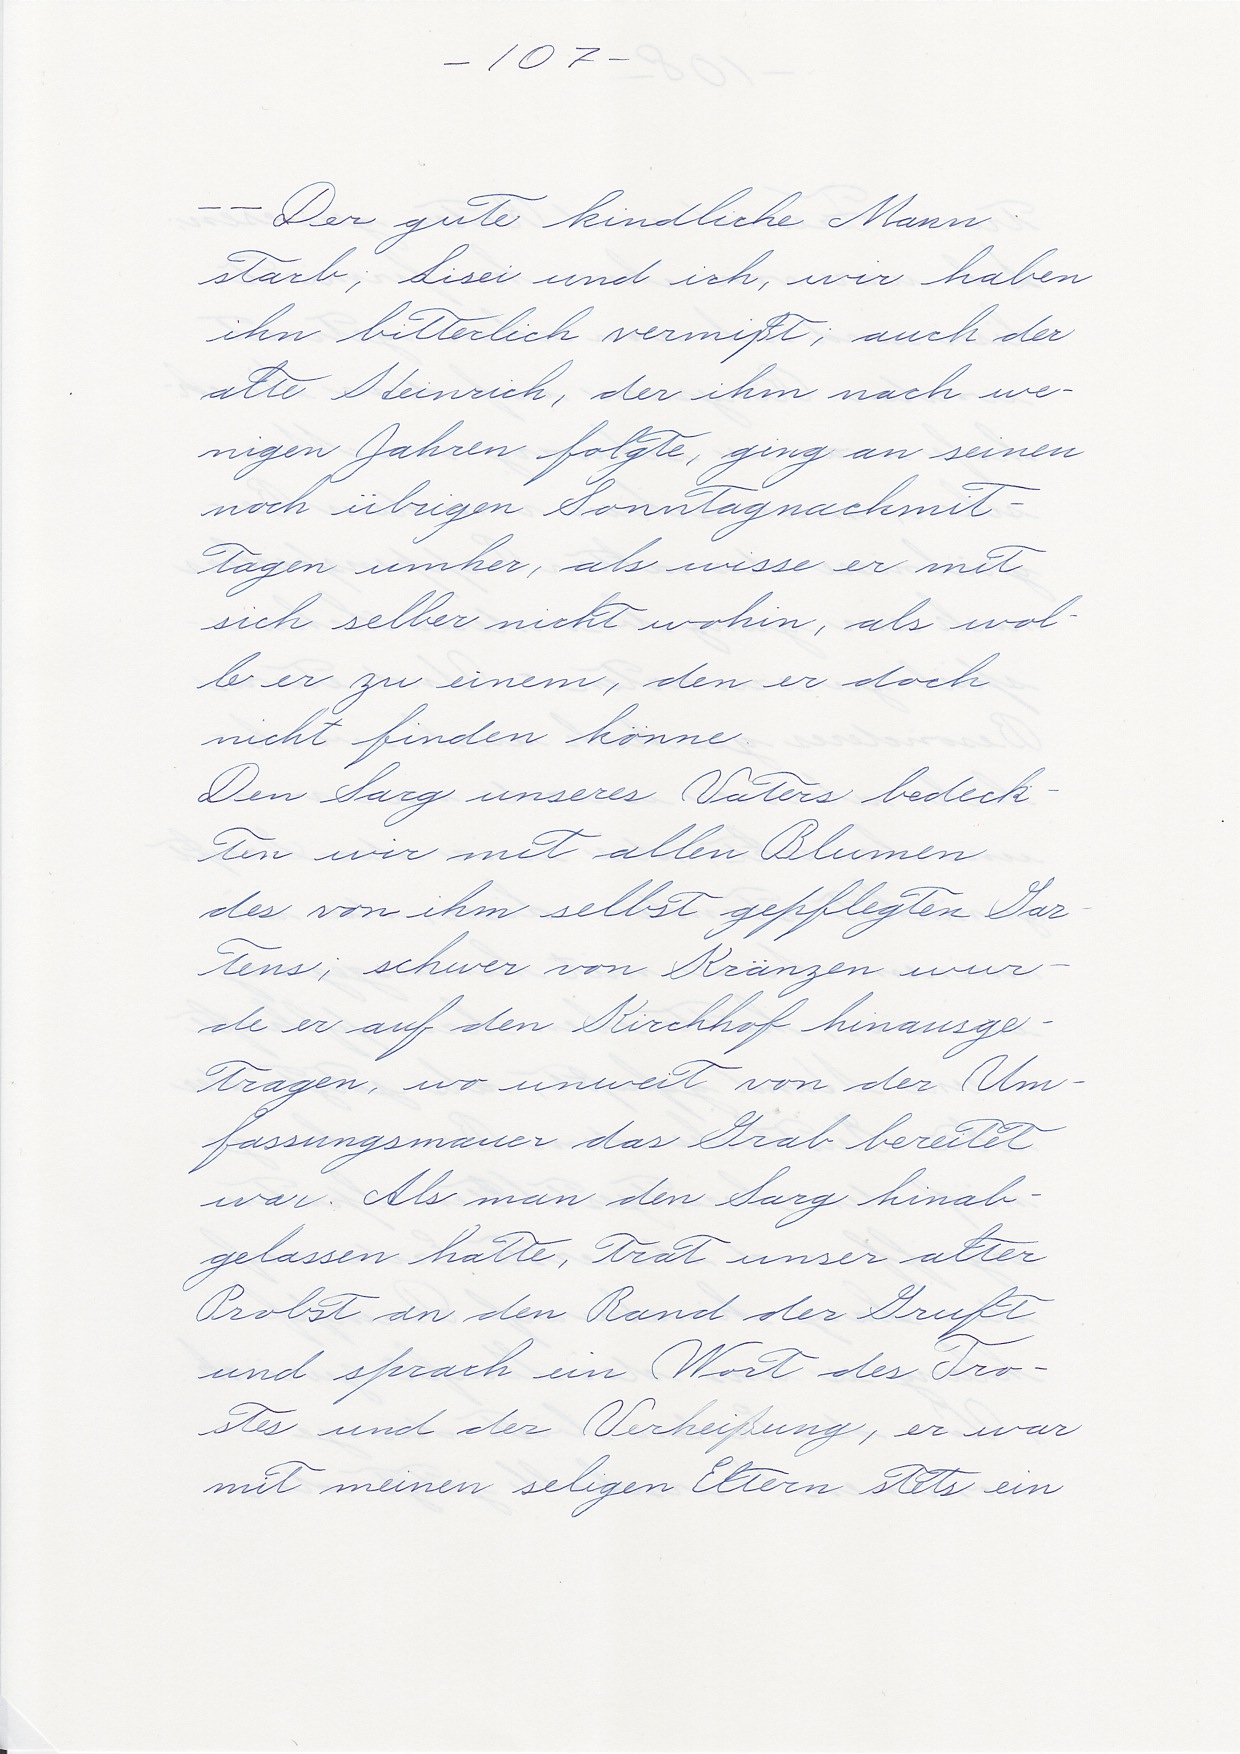 -107-
-- Der gute kindliche Mann
starb; Lisei und ich, wir haben
ihn bitterlich vermißt; auch der
alte Heinrich, der ihm nach we-
nigen Jahren folgte, ging an seinen
noch übrigen Sonntagnachmit-
tagen umher, als wisse er mit
sich selber nicht wohin, als wol-
le er zu einem, den er doch
nicht finden könne.
Den Sarg unseres Vaters bedeck-
ten wir mit allen Blumen
des von ihm selbst gepflegten Gar-
tens; schwer von Kränzen wur-
de er auf den Kirchhof hinausge-
tragen, wo unweit von der Um-
fassungsmauer das Grab bereitet
war. Als man den Sarg hinab-
gelassen hatte, trat unser alter
Probst an den Rand der Gruft
und sprach ein Wort des Tro-
stes und der Verheißung, er war
mit meinen seligen Eltern stets ein